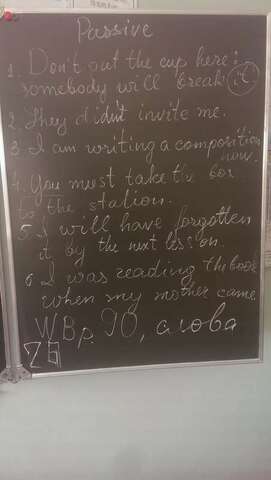 Passive
1. Don't out the cup here:
somebody will break it
2. They didn't invite me.
3. I am writing a composition
now.
4. You must take the box
to the station.
5. I will have forgotten
it by the next lesson.
6 I was reading the book
when my mother came
WB p. 90, слова